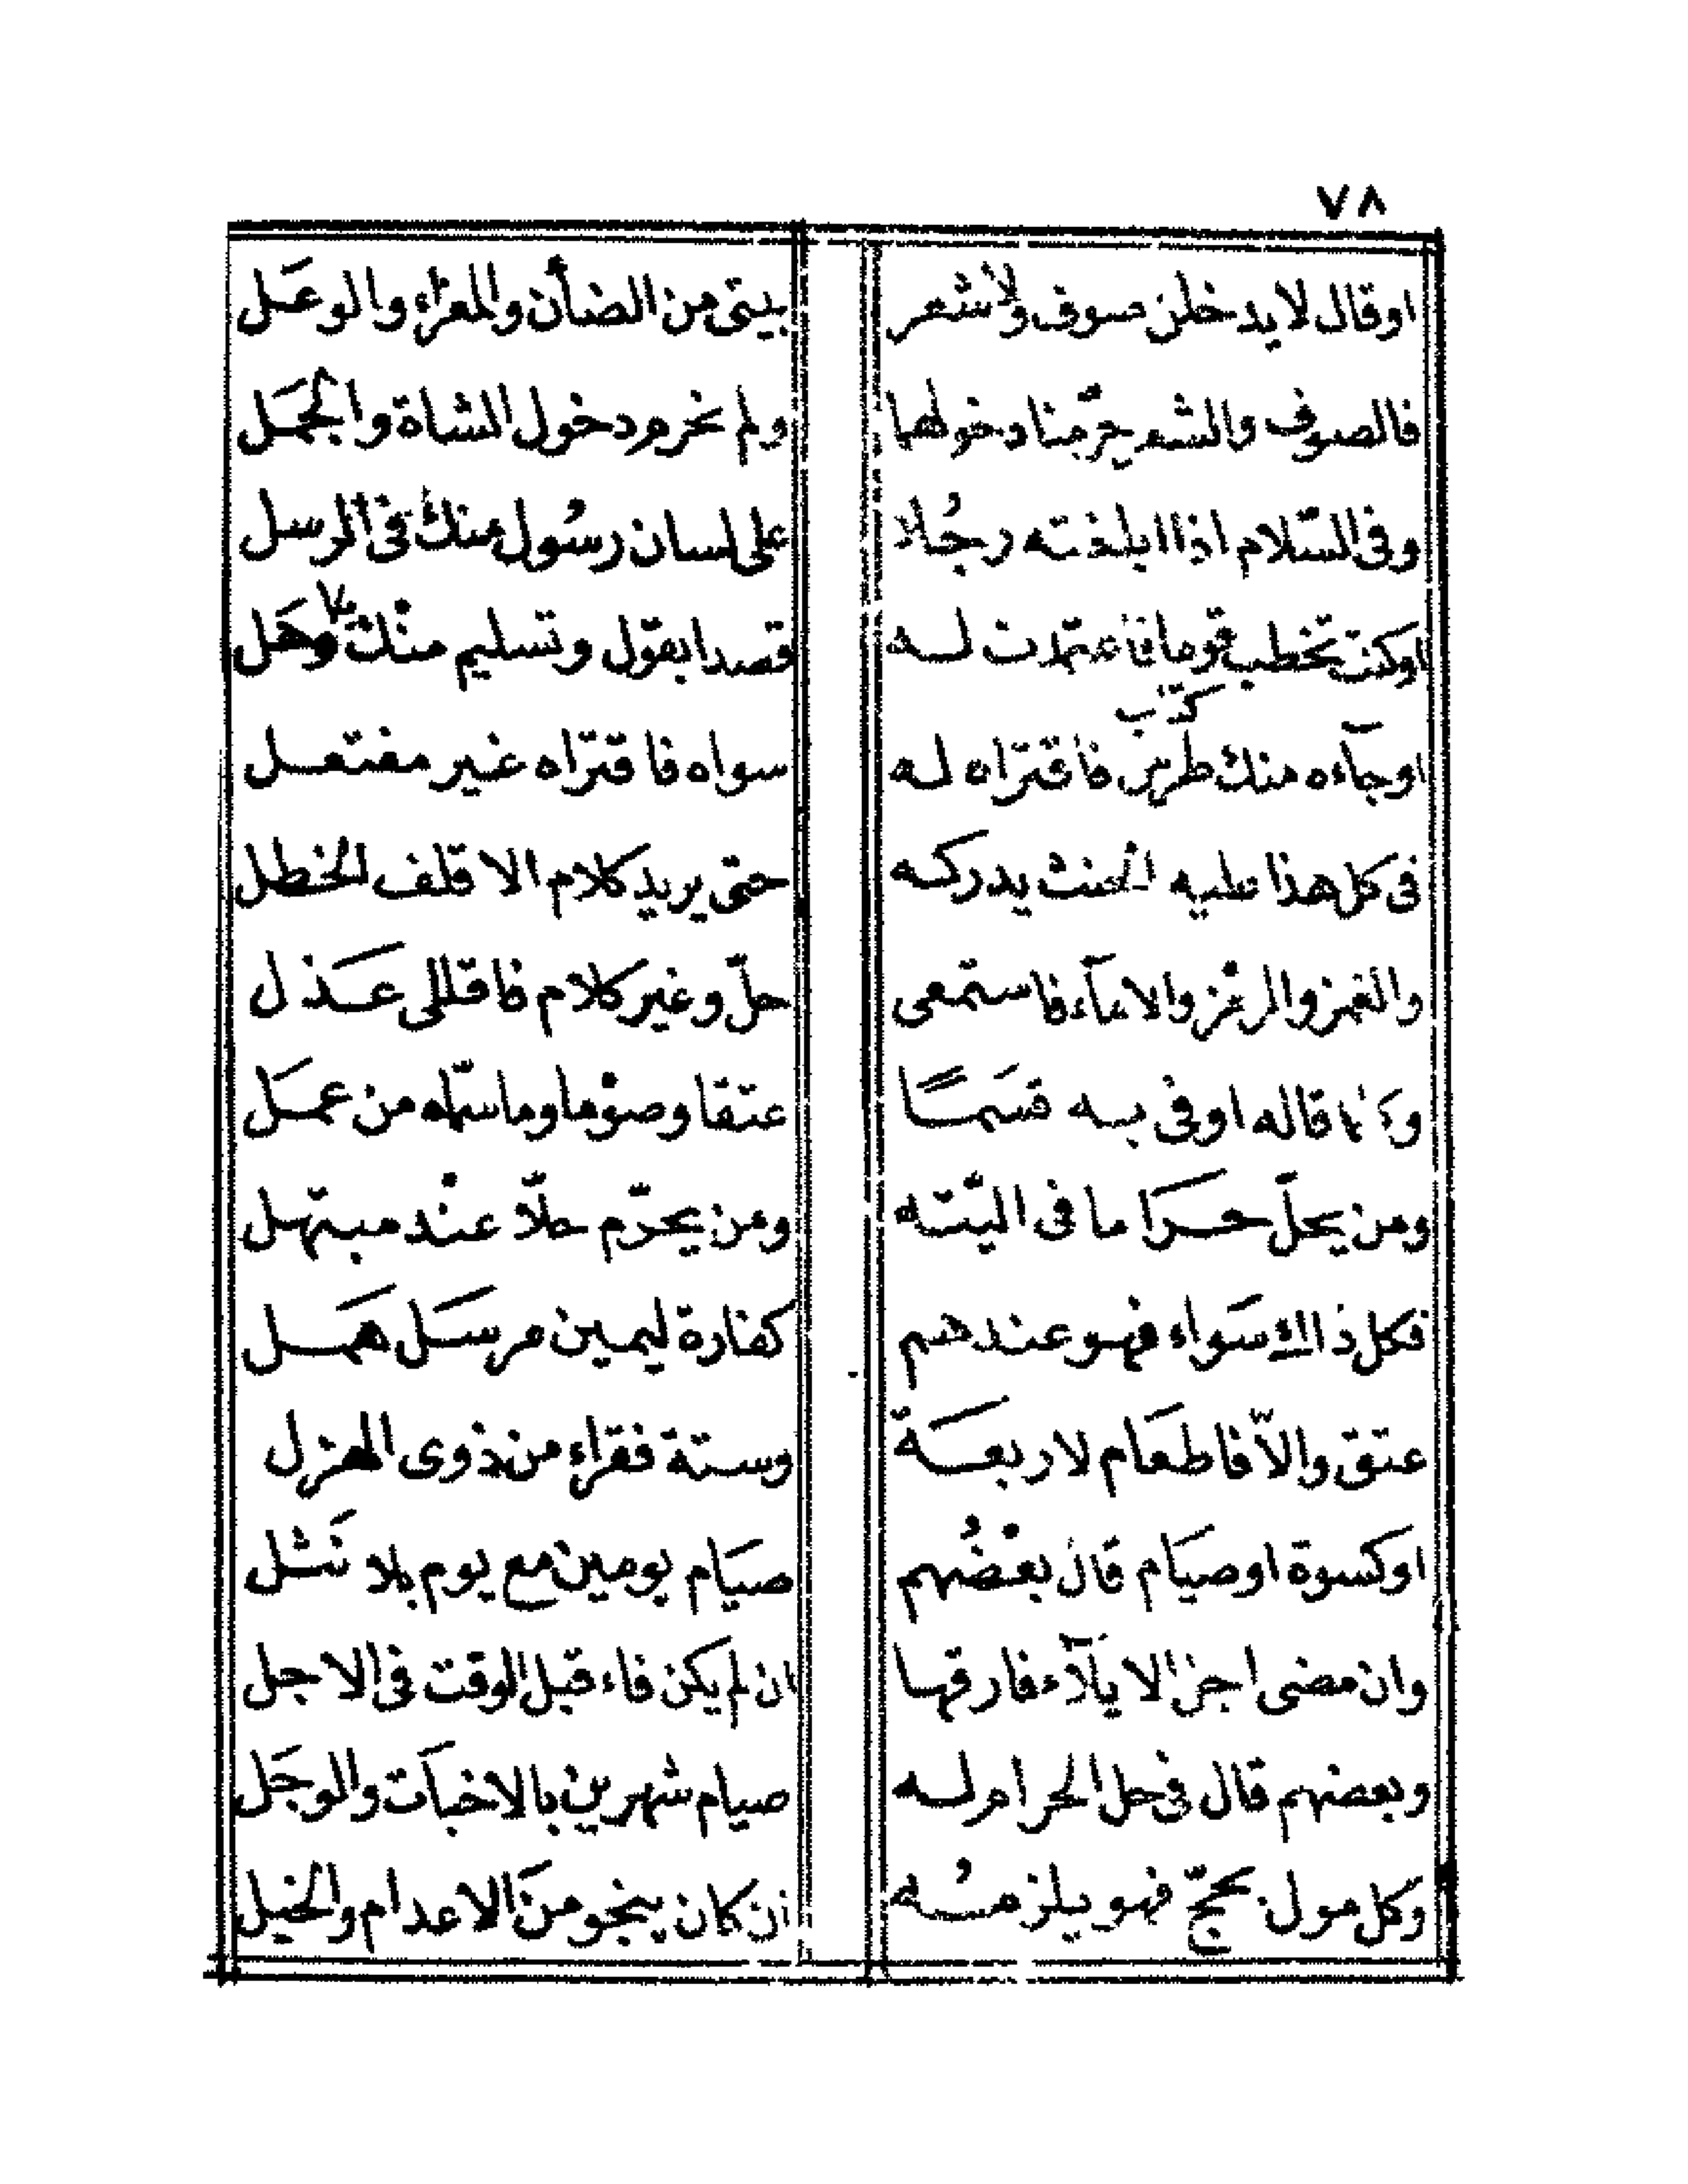 ٧٨
اوقال لايدخلن صوف ولا شعر بيتى من الضأن والمعزاء والوعَل
فالصوف والشعر حرّمنا دخولهما ولم نحرم دخول الشاة والجمَل
وفى السّلام اذا ابلغته رجُلا على لسان رسُول منك فى الرسل
اوكنت تخطب قوما فاعتمدت له قصدا بقول وتسليم منْك وهَل
كتاب
اوجآءه منك طرس فاقترّاه له سواه فاقترّاه غير مفتعل
فى كل هذا عليه الحنث يدركه حتى يريد كلام الاقلف الخطل
والغمز والرمْز والايمآء فاستمعى حلّ وغير كلام فاقللى عَذل
قاله اوفى به قسَمًا عتقا وصوْما وما سمّاه من عمَل
ومن يحلّ حَراما فى اليّته ومن يحرّم حلّا عنْد مبتهل
فكل ذاك سَواء فهو عندهم كفارة ليمين مرسَل همَل
عتق والاّ فاطعَام لاربعَة وستة فقراء من ذوى الهزل
اوكسوة اوصيَام قال بعْضُهم صيَام يومين مع يوم بلا نَثل
وان مضى اجل الايلآء فارقها ان لم يكن فاء قبل الوقت فى الاجل
وبعضهم قال فى حل الحرام له صيام شهرين بالاخبآت والوجَل
وكل مول بحجّ فهو يلزمُه ان كان ينجو منَ الاعدام والخيل